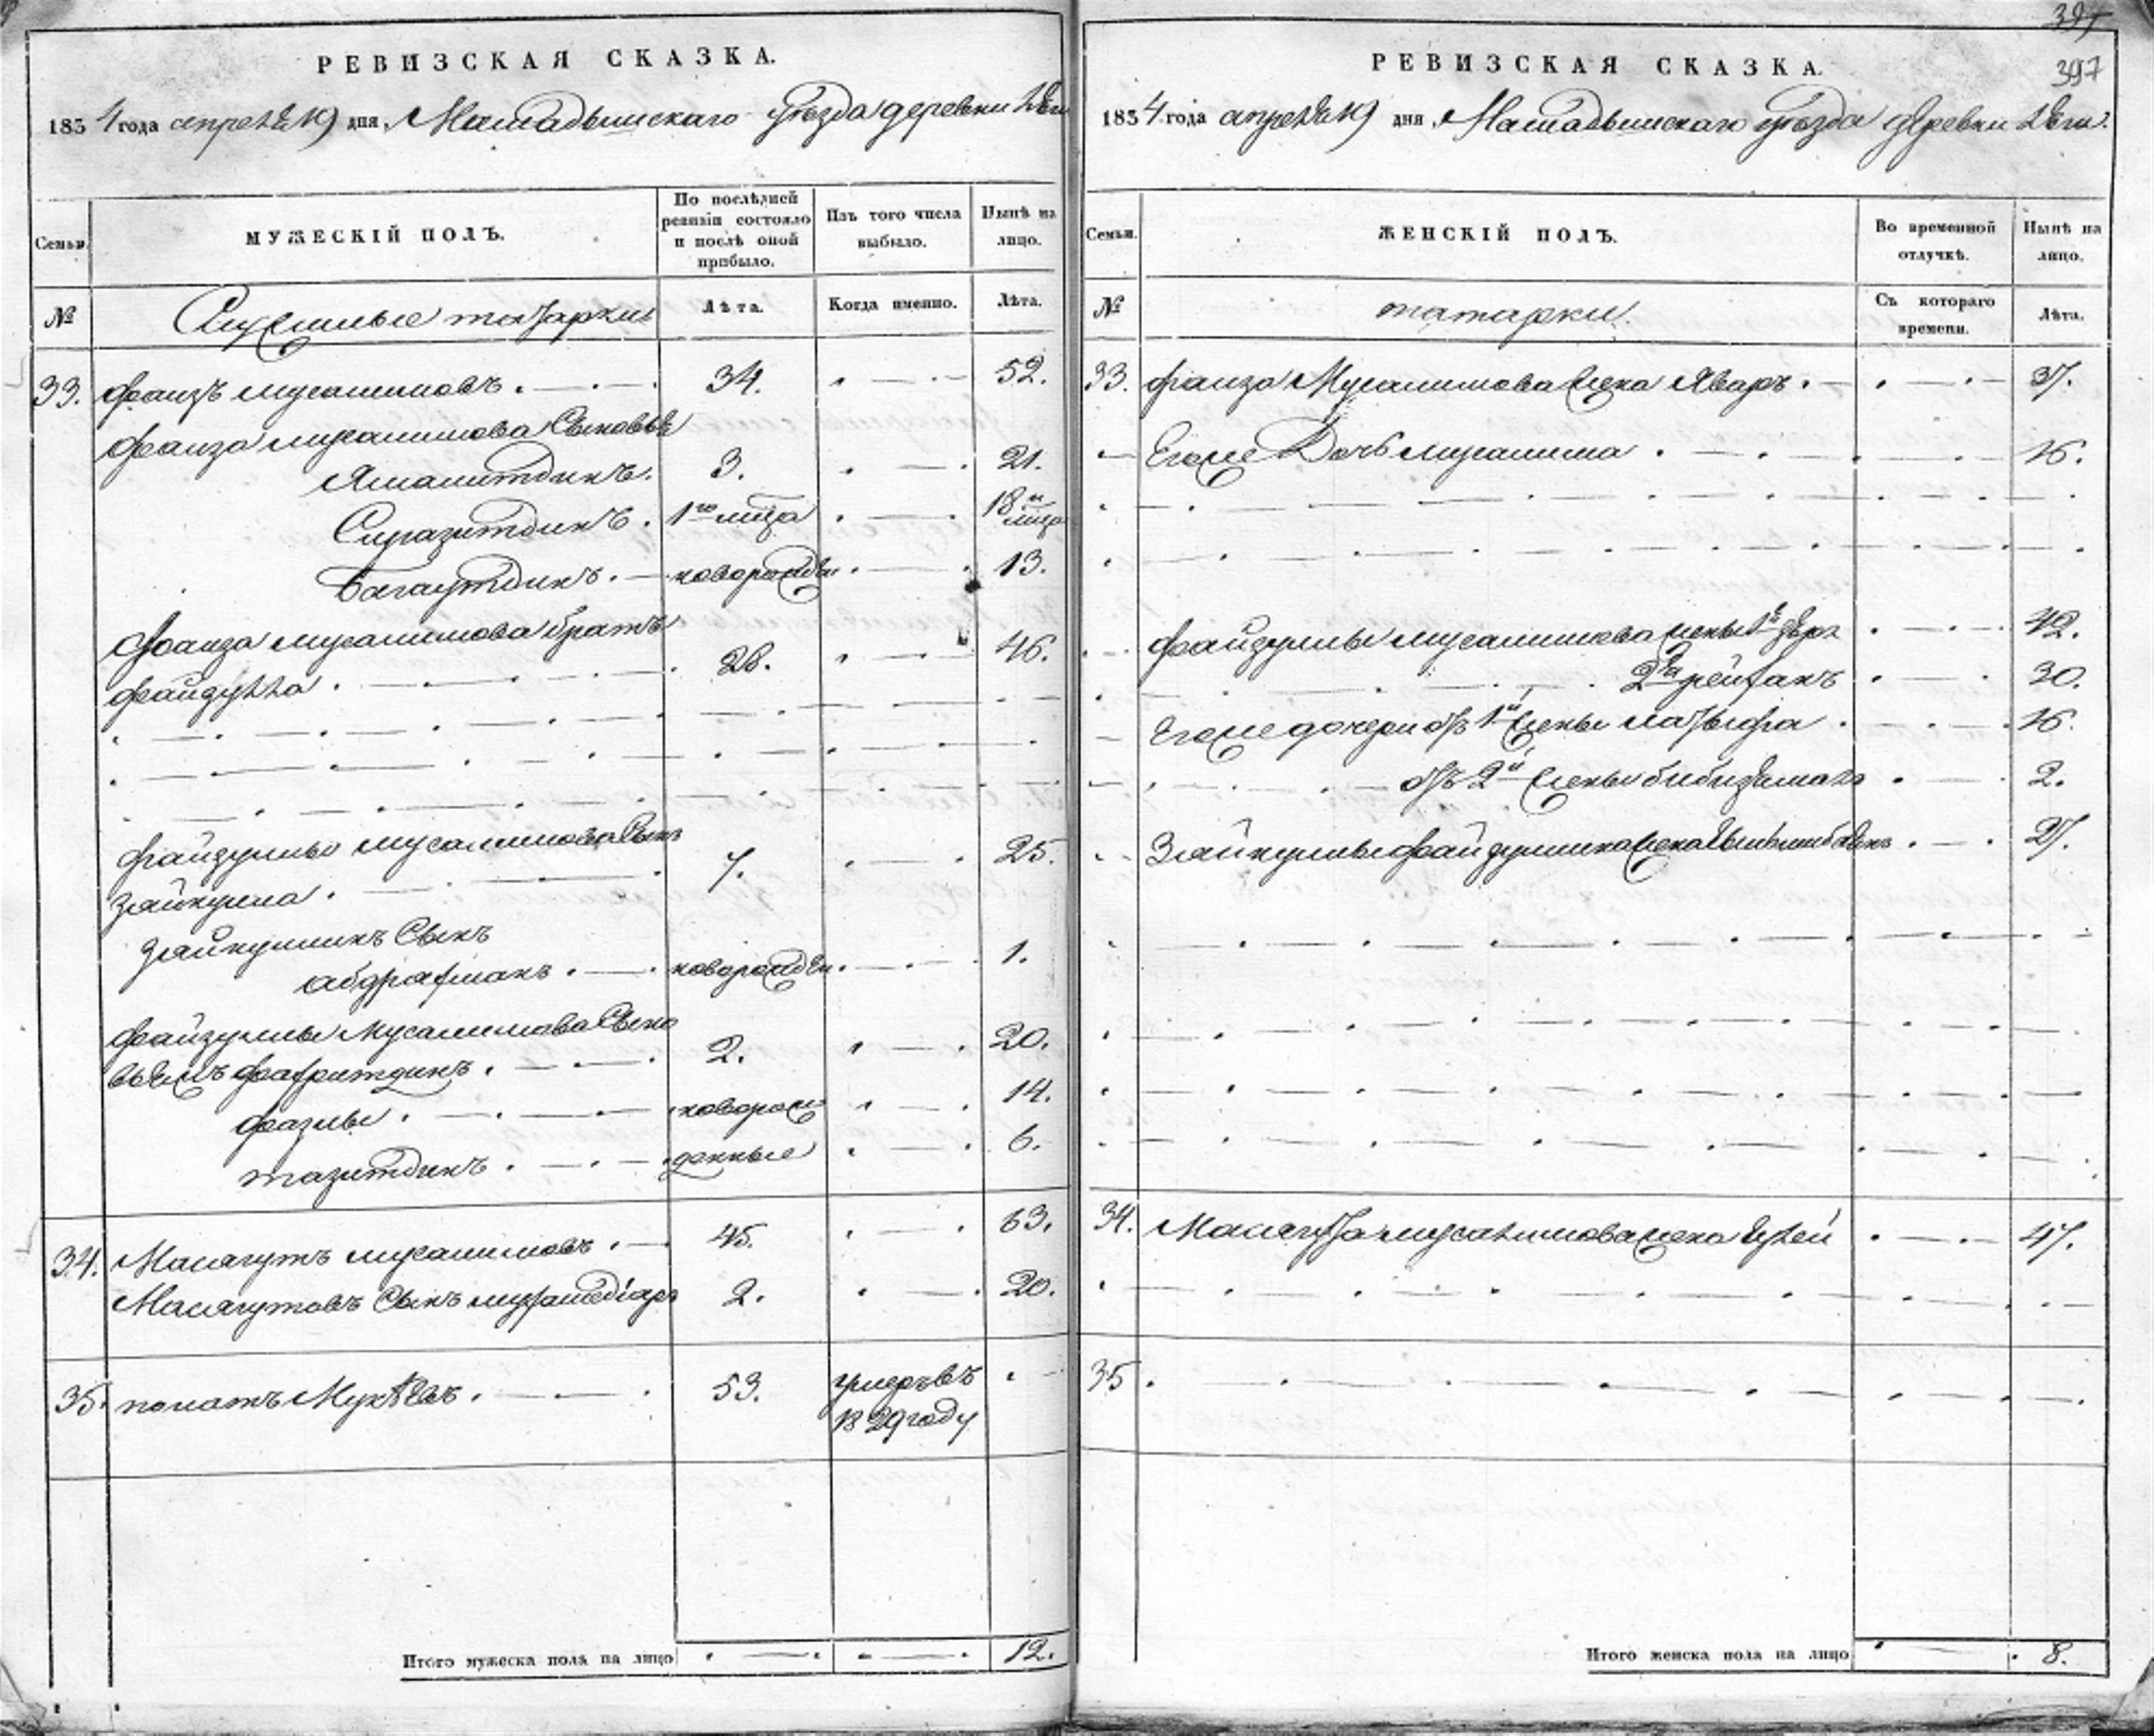 РЕВИЗСКАЯ СКАЗКА.
1834 года апреля 19 дня, Мамадышскаго уѣзда деревни
Семьи.
МУЖЕСКІЙ ПОЛЪ.
По послѣдней ревизіи состояло и послѣ оной прибыло.
Изъ того числа выбыло.
Нынѣ на лицо.
№
татары
Лѣта.
Когда именно.
Лѣта.
33. Фаизъ Мусалимовъ. 34. 52.
Фаиза Мусалимова Сыновья
Ямалитдинъ. 3. 21.
Сиразитдинъ. 18 и
Багаутдинъ. новорожден 13.
Фаиза Мусалимова братъ
Файзулла. 28. 46.
Файзуллы Мусалимова Сынъ
Зяйнулла. 7. 25.
Зяйнуллинъ Сынъ
абдрахманъ. новорожден. 1.
Файзуллы Мусалимова Сыно
вья Фахритдинъ. 2. 20.
Фазлы. новорож 14.
тазитдинъ. денные 6.
34. Масягутъ Мусалимовъ. 45. 63.
Масягутовъ Сынъ 2. 20.
35. 53. умеръ въ
1829 году
Итого мужеска пола на лицо 12.
397
397
РЕВИЗСКАЯ СКАЗКА.
1834 года апреля 19 дня, Мамадышскаго уѣзда деревни
Семьи.
ЖЕНСКІЙ ПОЛЪ.
Во временной отлучкѣ.
Нынѣ на лицо.
№
татарки.
Съ котораго времени.
Лѣта.
33. Фаиза Мусалимова жена Яваръ. 37.
Егоже Дочь 16.
Файзуллы Мусалимова жены 1я 42.
2я 30.
Егоже дочери отъ 1й жены латыфа. 16.
отъ 2й жены 2.
Зяйнуллы Файзуллина жена 27.
34. Масягута Мусалимова жена 47.
35.
Итого женска пола на лицо 8.